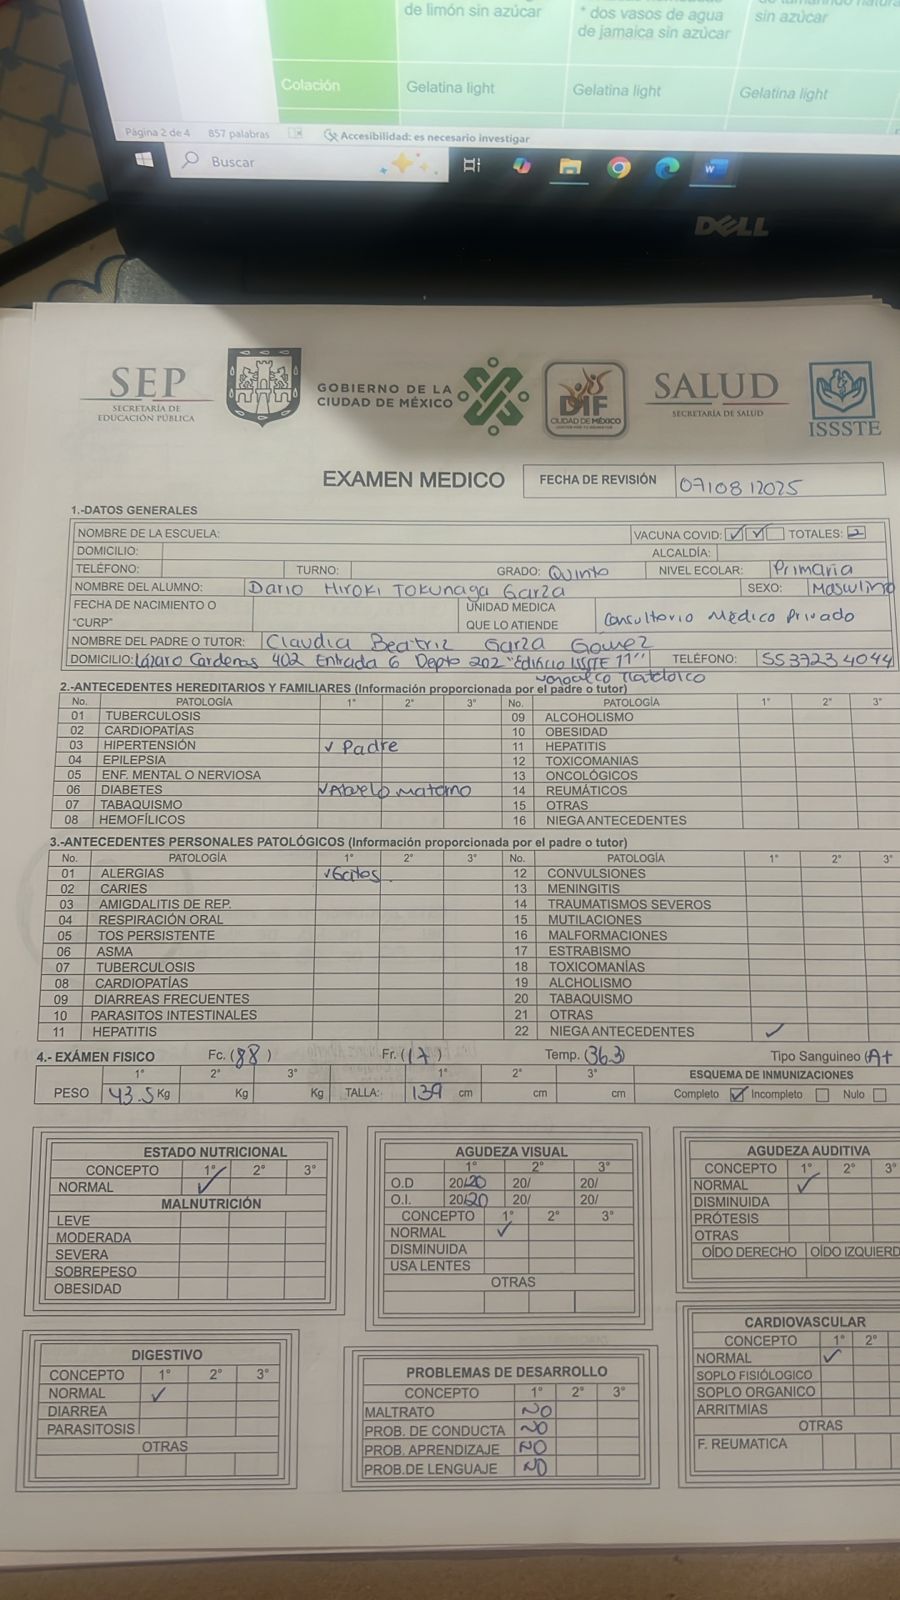 de limón sin azúcar
* dos vasos de agua
de jamaica sin azúcar
sin azúcar
Colación Gelatina light Gelatina light Gelatina light
Página 2 de 4 857 palabras Accesibilidad: es necesario investigar
Buscar
DELL
SEP
SECRETARÍA DE
EDUCACIÓN PÚBLICA
GOBIERNO DE LA
CIUDAD DE MÉXICO
DIF
CIUDAD DE MÉXICO
SALUD
SECRETARÍA DE SALUD
ISSSTE
EXAMEN MEDICO FECHA DE REVISIÓN 07108 12025
1.-DATOS GENERALES
NOMBRE DE LA ESCUELA: VACUNA COVID: ✓ ✓ TOTALES: 2
DOMICILIO: ALCALDÍA:
TELÉFONO: TURNO: GRADO: Quinto NIVEL ECOLAR: Primaria
NOMBRE DEL ALUMNO: Dario Hiroki Tokunaga Garza SEXO: Masculino
FECHA DE NACIMIENTO O
"CURP"
UNIDAD MEDICA
QUE LO ATIENDE Consultorio Médico Privado
NOMBRE DEL PADRE O TUTOR: Claudia Beatriz Garza Gómez
DOMICILIO: Lázaro Cardenas 402 Entrada 6 Depto 202 "Edificio ISSTE 11" TELÉFONO: 5537234044
Nonoalco Tlatelolco
2.-ANTECEDENTES HEREDITARIOS Y FAMILIARES (Información proporcionada por el padre o tutor)
No. PATOLOGÍA 1° 2° 3° No. PATOLOGÍA 1° 2° 3°
01 TUBERCULOSIS 09 ALCOHOLISMO
02 CARDIOPATÍAS 10 OBESIDAD
03 HIPERTENSIÓN ✓ Padre 11 HEPATITIS
04 EPILEPSIA 12 TOXICOMANIAS
05 ENF. MENTAL O NERVIOSA 13 ONCOLÓGICOS
06 DIABETES ✓ Abuelo materno 14 REUMÁTICOS
07 TABAQUISMO 15 OTRAS
08 HEMOFÍLICOS 16 NIEGA ANTECEDENTES
3.-ANTECEDENTES PERSONALES PATOLÓGICOS (Información proporcionada por el padre o tutor)
No. PATOLOGÍA 1° 2° 3° No. PATOLOGÍA 1° 2° 3°
01 ALERGIAS ✓ Gatos 12 CONVULSIONES
02 CARIES 13 MENINGITIS
03 AMIGDALITIS DE REP. 14 TRAUMATISMOS SEVEROS
04 RESPIRACIÓN ORAL 15 MUTILACIONES
05 TOS PERSISTENTE 16 MALFORMACIONES
06 ASMA 17 ESTRABISMO
07 TUBERCULOSIS 18 TOXICOMANÍAS
08 CARDIOPATÍAS 19 ALCHOLISMO
09 DIARREAS FRECUENTES 20 TABAQUISMO
10 PARASITOS INTESTINALES 21 OTRAS
11 HEPATITIS 22 NIEGA ANTECEDENTES ✓
4.- EXÁMEN FISICO Fc. (88) Fr. (17) Temp. (363) Tipo Sanguineo (A+
1° 2° 3° 1° 2° 3° ESQUEMA DE INMUNIZACIONES
PESO 43.5 Kg Kg Kg TALLA: 139 cm cm cm Completo ✓ Incompleto Nulo
ESTADO NUTRICIONAL
CONCEPTO 1° 2° 3°
NORMAL ✓
MALNUTRICIÓN
LEVE
MODERADA
SEVERA
SOBREPESO
OBESIDAD
AGUDEZA VISUAL
1° 2° 3°
O.D 20/20 20/ 20/
O.I. 20/20 20/ 20/
CONCEPTO 1° 2° 3°
NORMAL ✓
DISMINUIDA
USA LENTES
OTRAS
AGUDEZA AUDITIVA
CONCEPTO 1° 2° 3°
NORMAL ✓
DISMINUIDA
PRÓTESIS
OTRAS
OÍDO DERECHO OÍDO IZQUIERD
DIGESTIVO
CONCEPTO 1° 2° 3°
NORMAL ✓
DIARREA
PARASITOSIS
OTRAS
PROBLEMAS DE DESARROLLO
CONCEPTO 1° 2° 3°
MALTRATO NO
PROB. DE CONDUCTA NO
PROB. APRENDIZAJE NO
PROB.DE LENGUAJE NO
CARDIOVASCULAR
CONCEPTO 1° 2°
NORMAL ✓
SOPLO FISIÓLOGICO
SOPLO ORGANICO
ARRITMIAS
OTRAS
F. REUMATICA